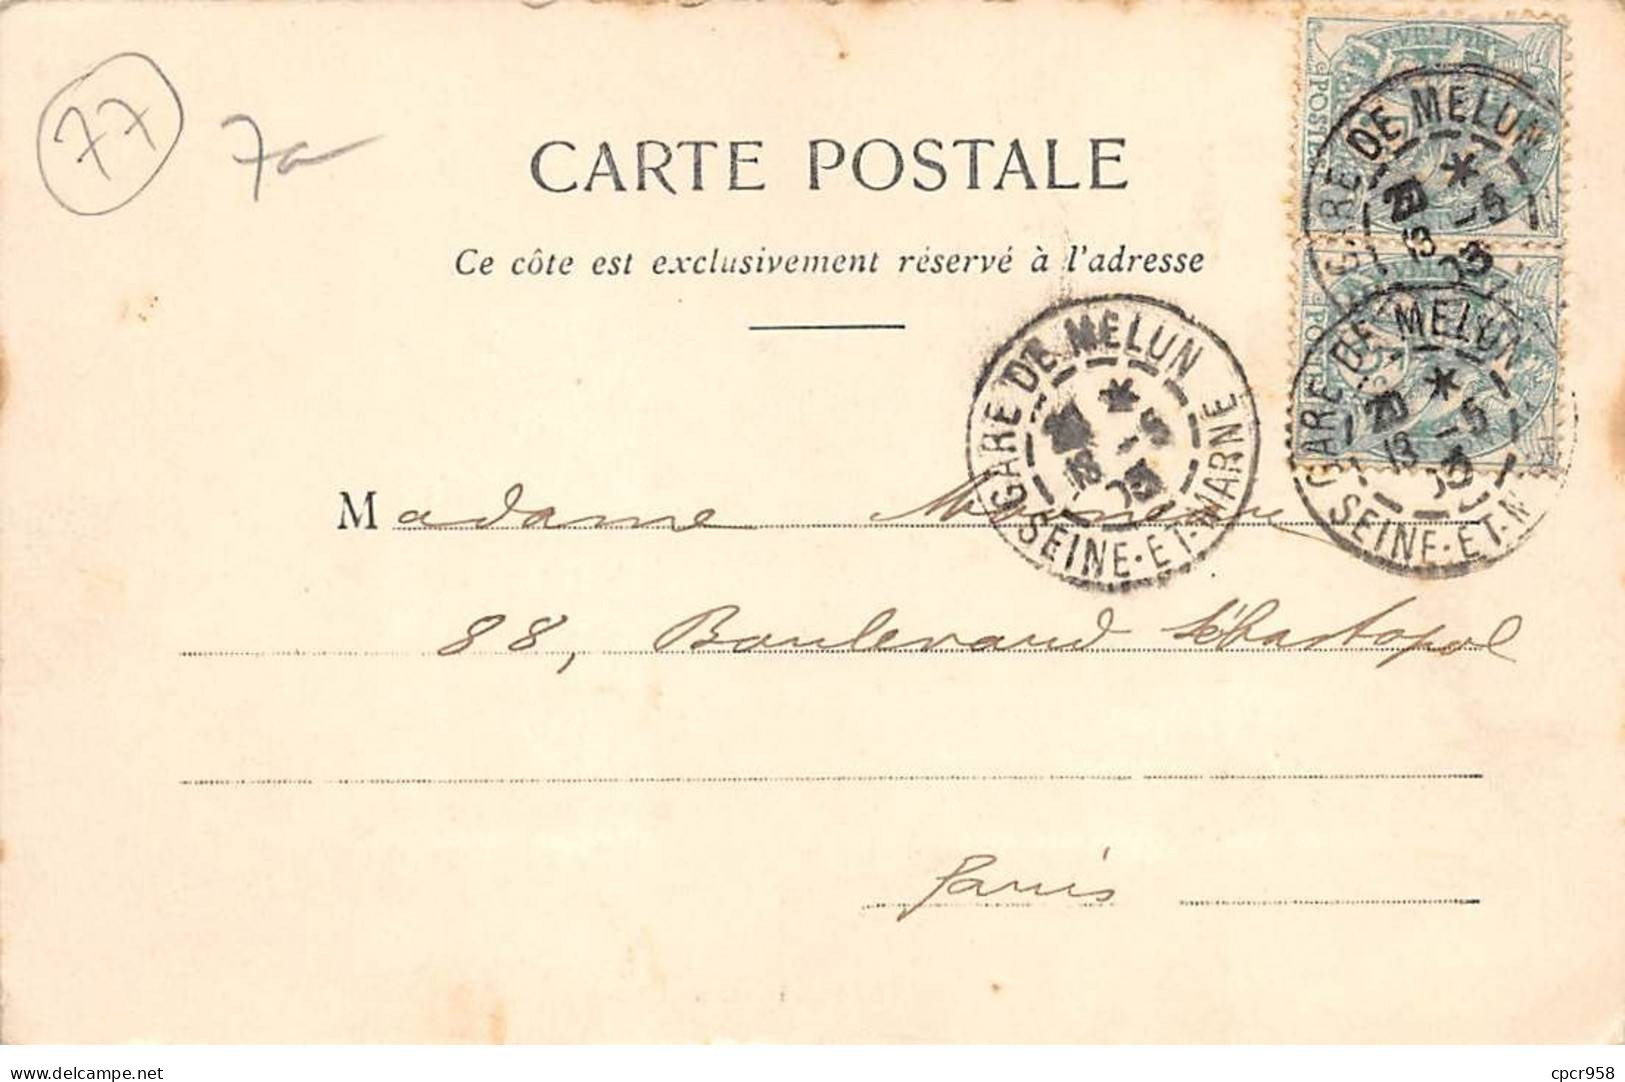 77
7a
CARTE POSTALE
Ce côte est exclusivement réservé à l'adresse
POST
GARE DE MELUN
20 *
13 -5
03
GARE DE MELUN
20 *
13 -5
03
SEINE-ET-M
GARE DE MELUN
*
13 -5
03
SEINE-ET-MARNE
Madame
88, Boulevard Sébastopol
Paris
delcampe.net
cpcr958